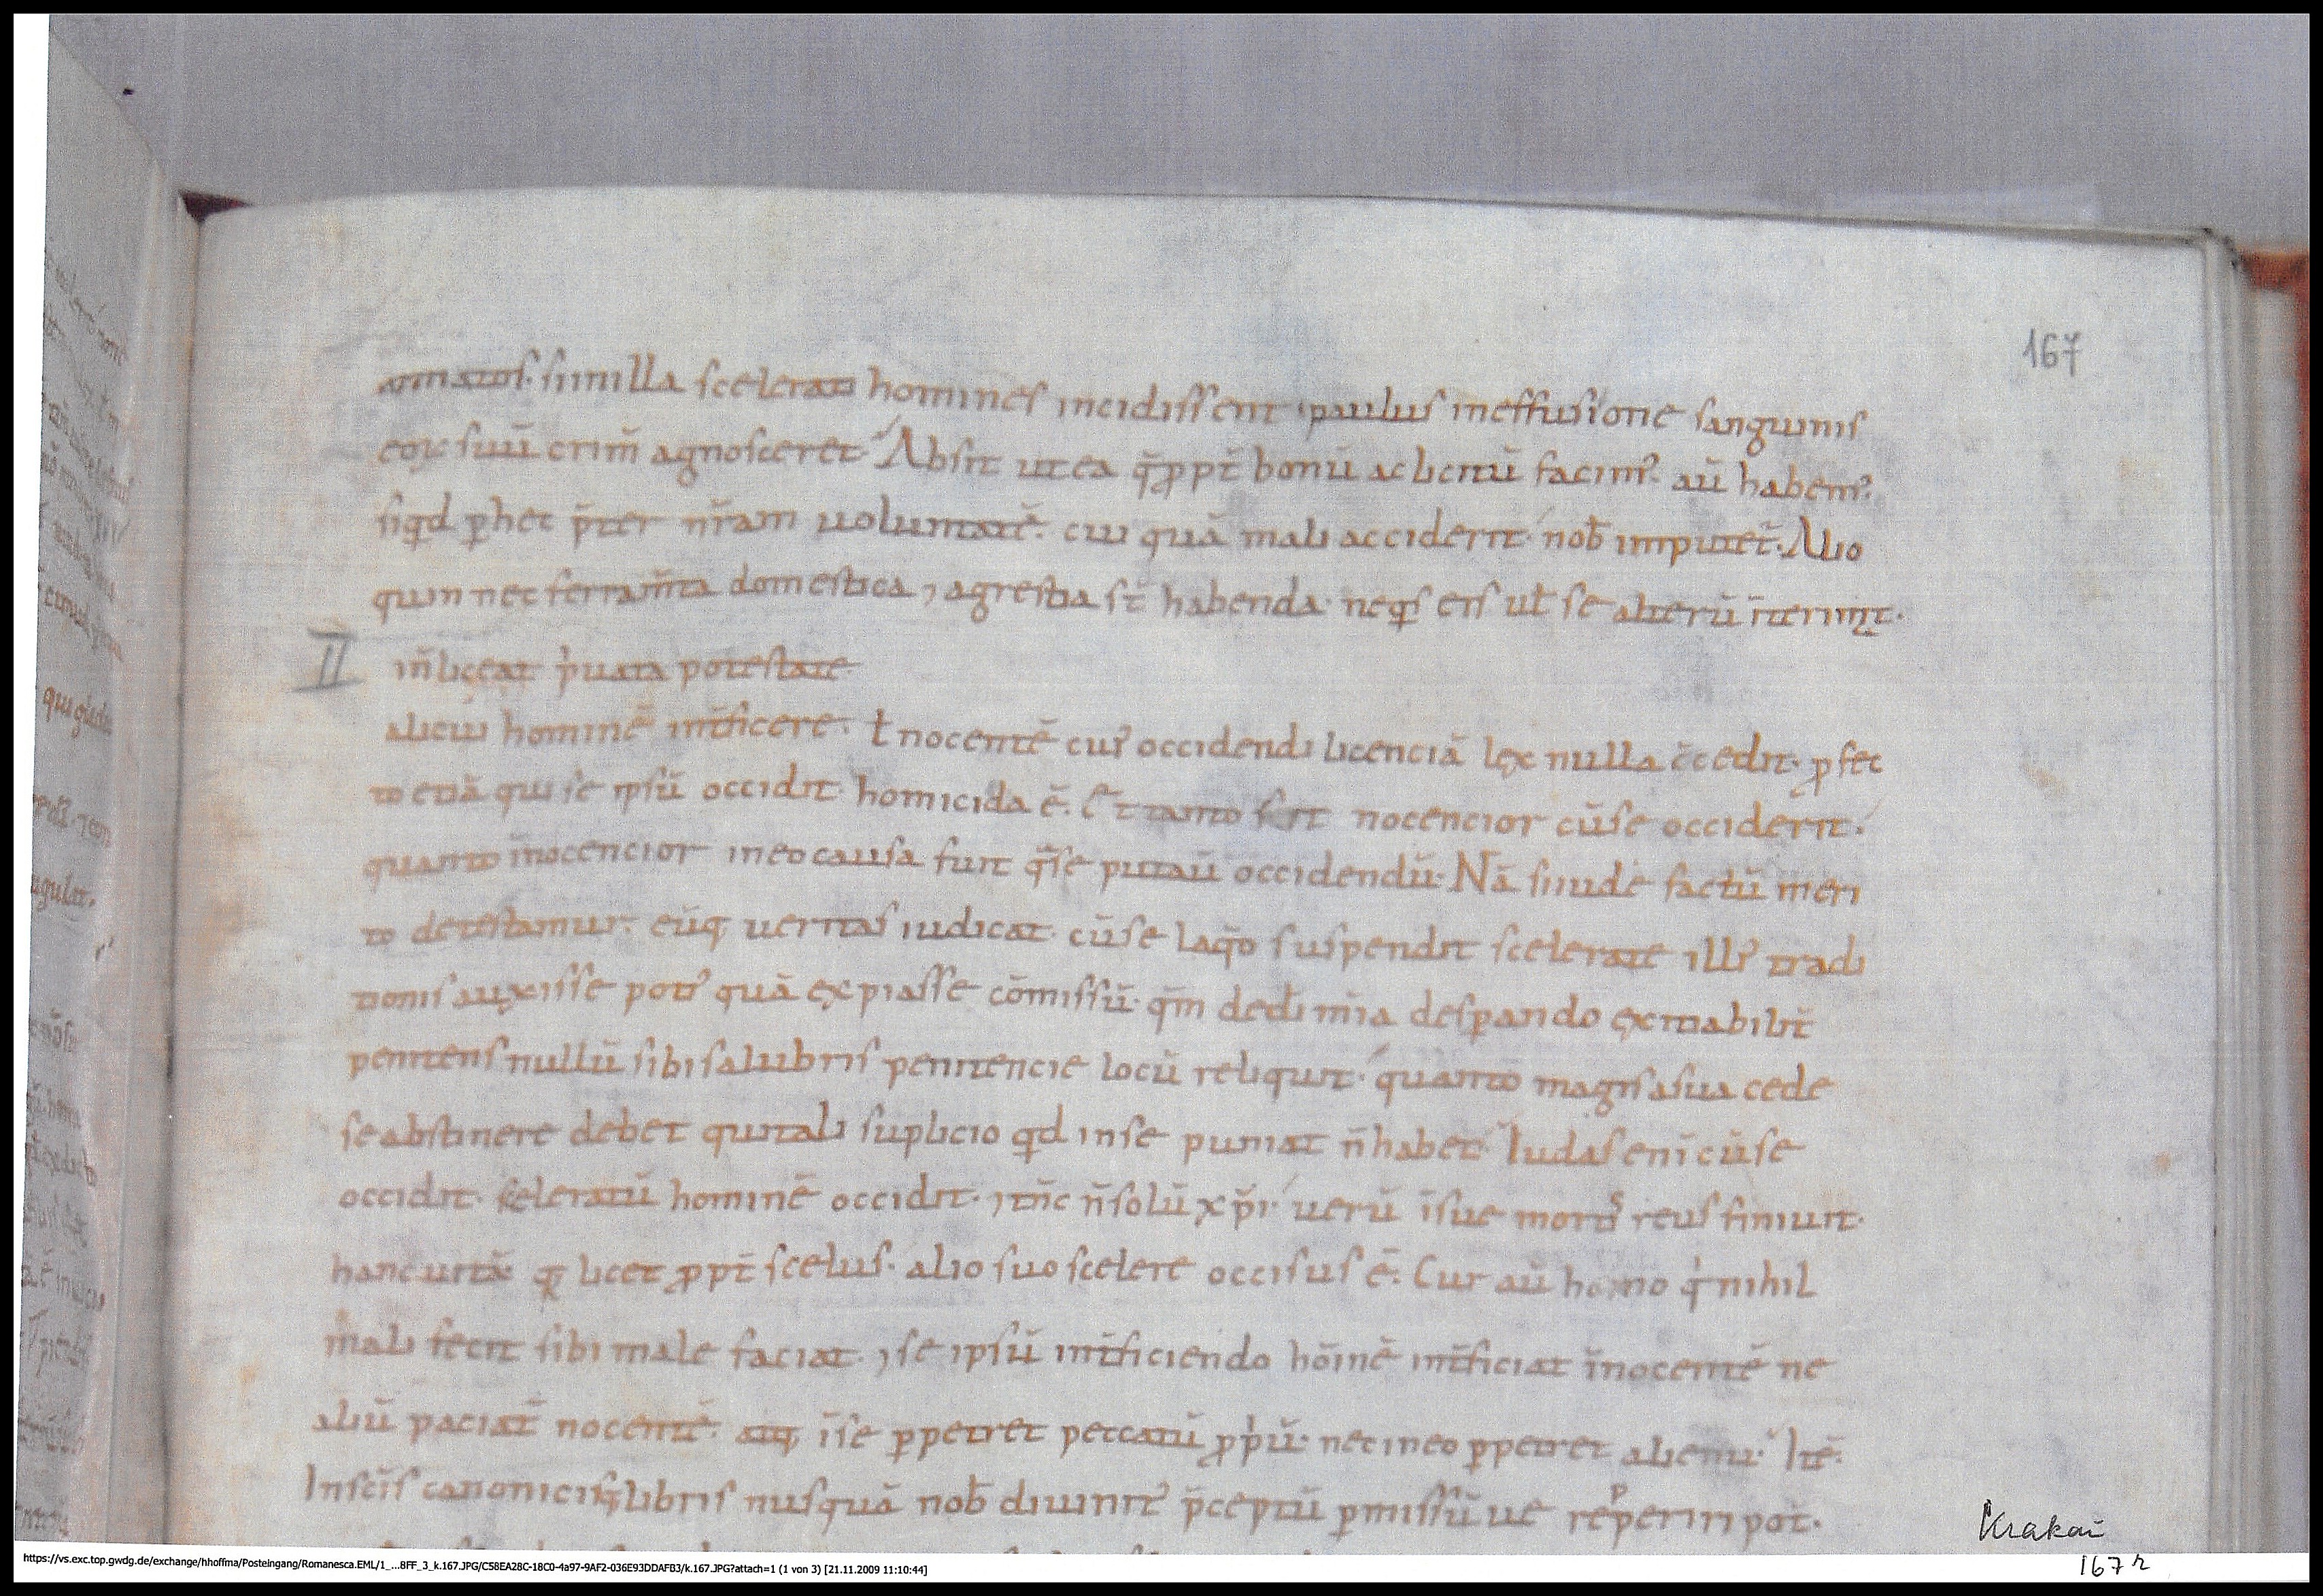 167
armatos. si in illa scelerati homines incidissent paulus in effusione sanguinis
eoꝝ suū crim̄ agnosceret. Absit ut ea q̄ ꝓpt̄ bonū ac licitū facimꝰ. aū habemꝰ.
siq̇d ꝑ hec p̄ter nr̄am uoluntatē. cuiquā mali acciderit. nob̄ imputet̄. Alio
quin nec ferram̄ta domestica ⁊ agrestia st̄ habenda. neq̇s eis ul̄ se alterū
II in̄ liceat p̍uata potestate.
alicui hominē int̄ficere. ł nocentē cuiꝰ occidendi licenciā lex nulla c̄cedit. ꝓfec
to etiā qui se ipsū occidit. homicida ē. Et tanto fit nocencior cū se occiderit.
quanto īnocencior in eo causa fuit q̄ se putau̅ occidendū. Nā si iude factū meri
to detestamur. eūq; ueritas iudicat. cū se laq̄o suspendit scelerate illiꝰ tradi
tionis auxisse potiꝰ quā expiasse cōmissū. qm̄ dei mīa desꝑando exitiabilit̄
penitens nullū sibi salubris penitencie locū reliquit. quanto magis a sua cede
se abstinere debet qui tali suplicio qd in se puniat n̄ habet. Iudas eni cū se
occidit. sceleratū hominē occidit. ⁊ tn̄c n̄ solū xp̄i. uerū ī sue mortis reus finiuit.
hanc uitā. q licet ꝓpt̄ scelus. alio suo scelere occisus ē. Cur aū homo q̍ nihil
mali fecit sibi male faciat. ⁊ se ipsū int̄ficiendo hōinē int̄ficiat īnocentē ne
aliū paciat̄ nocentē. atq; ī se ꝑpetret peccatū ꝓp̍ū. nec in eo ꝑpetret alienū. Itē.
In scīs canonicisq; libris nusquā nob̄ diuinitꝰ p̄ceptū ꝑmissūue reperiri pot̄.
Krakau
167 r
https://vs.exc.top.gwdg.de/exchange/hhoffma/Posteingang/Romanesca.EML/1_...8FF_3_k.167.JPG/C58EA28C-18C0-4a97-9AF2-036E93DDAFB3/k.167.JPG?attach=1 (1 von 3) [21.11.2009 11:10:44]